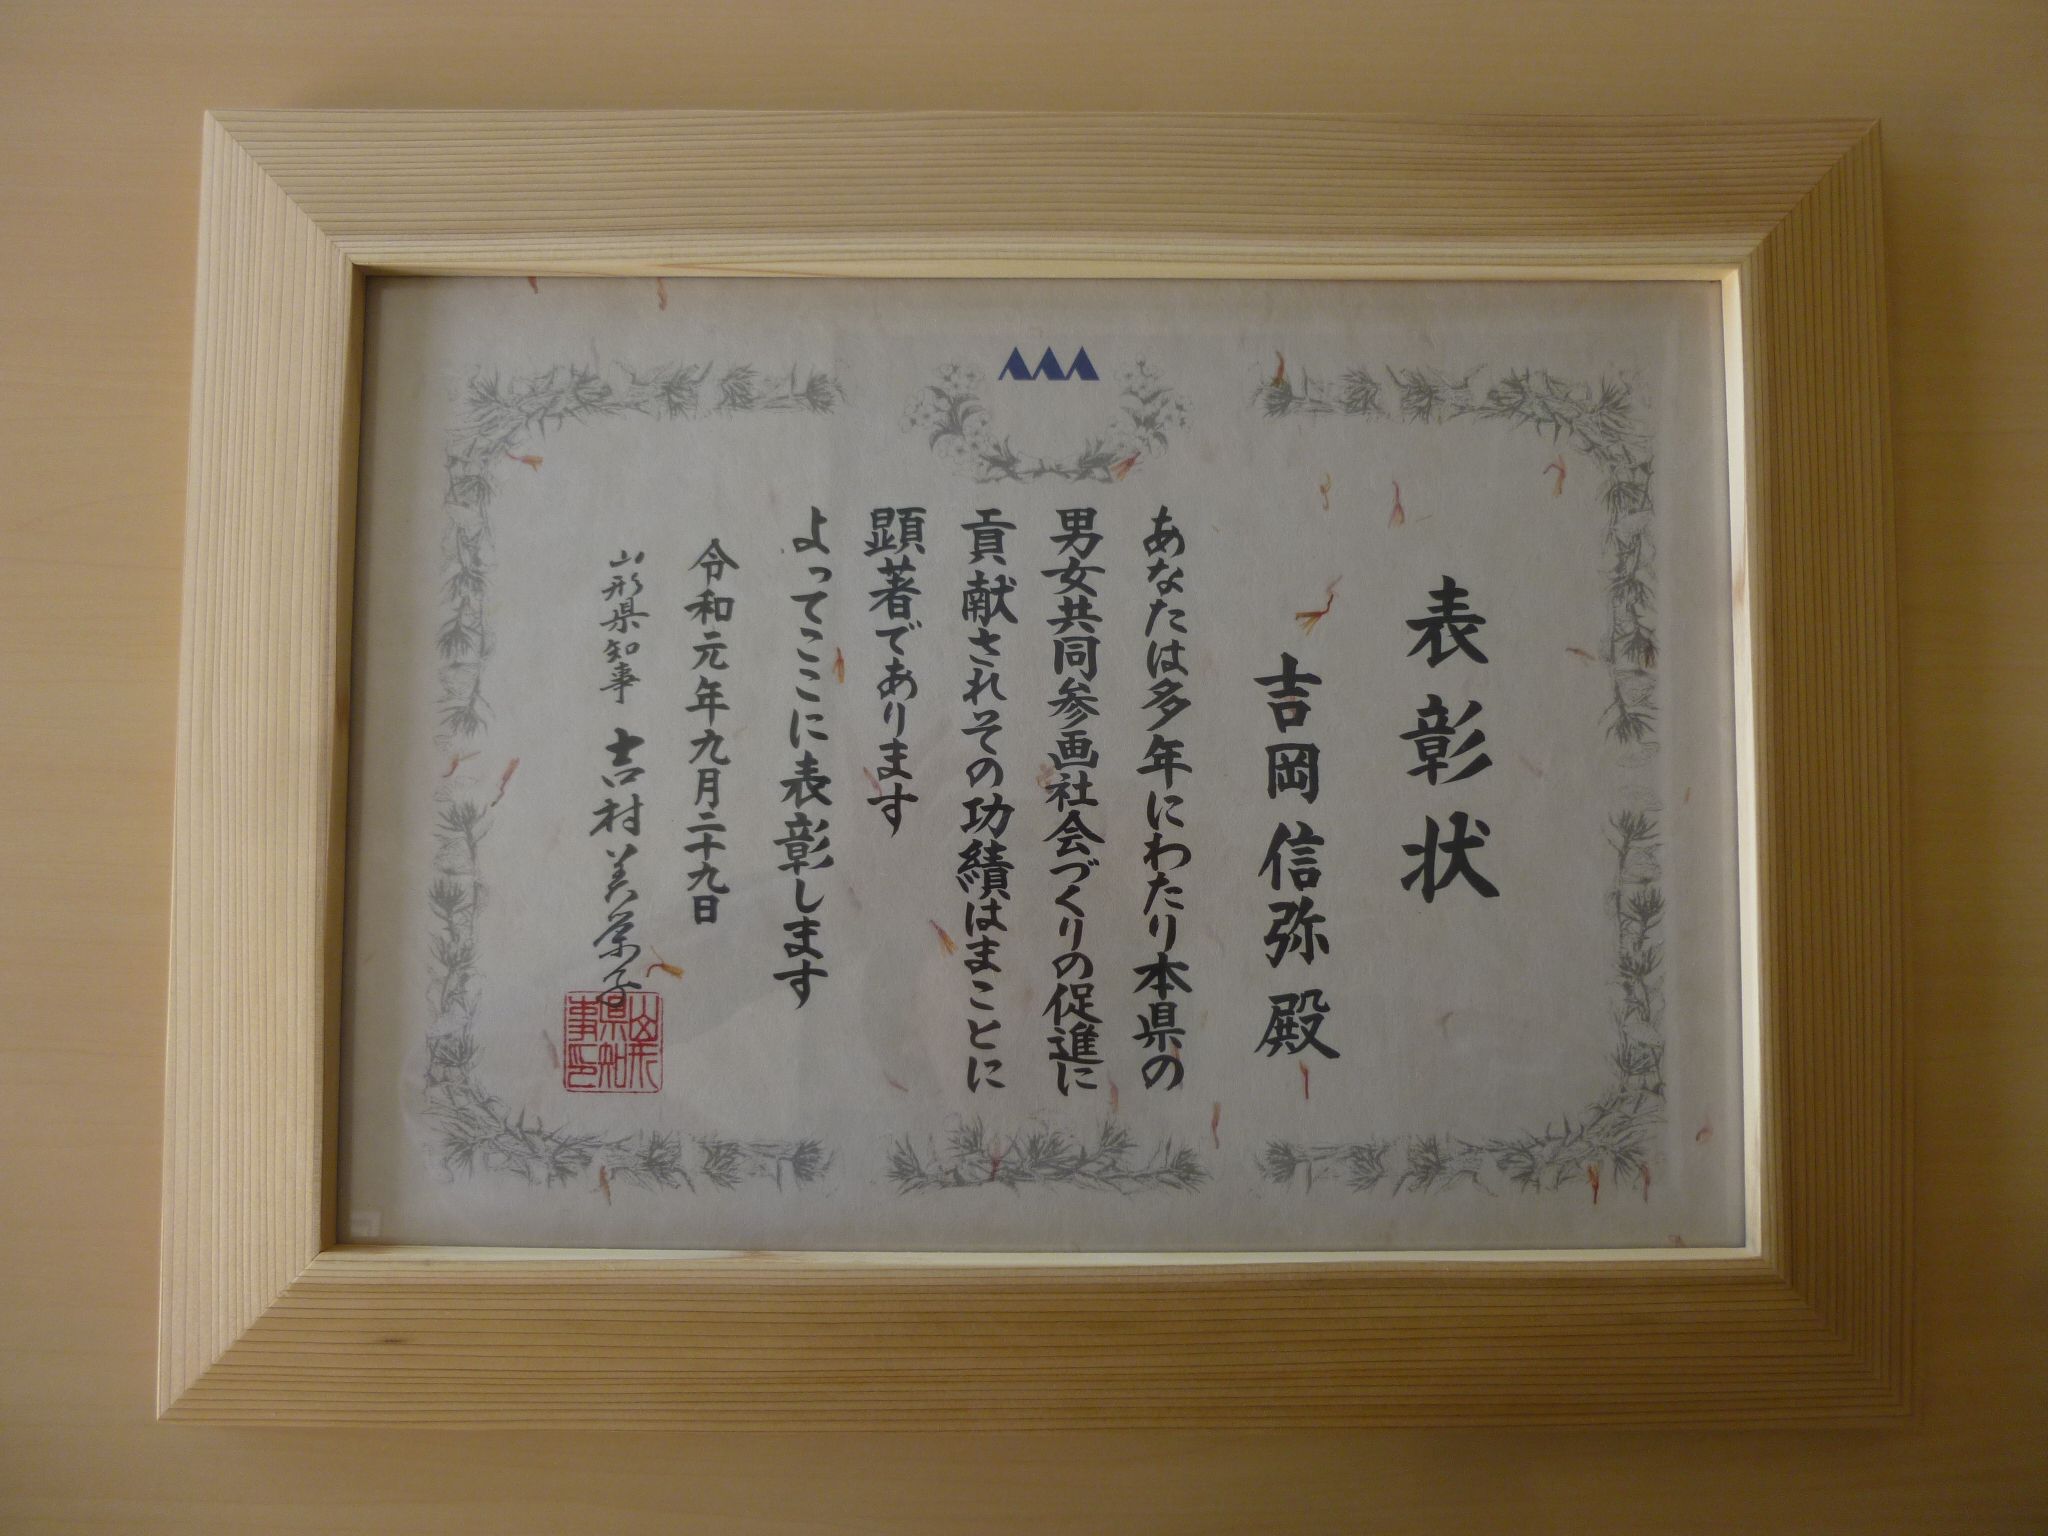 表彰状
吉岡信弥殿
あなたは多年にわたり本県の
男女共同参画社会づくりの促進に
貢献されその功績はまことに
顕著であります
よってここに表彰します
令和元年九月二十九日
山形県知事 吉村美栄子
山形県知事印